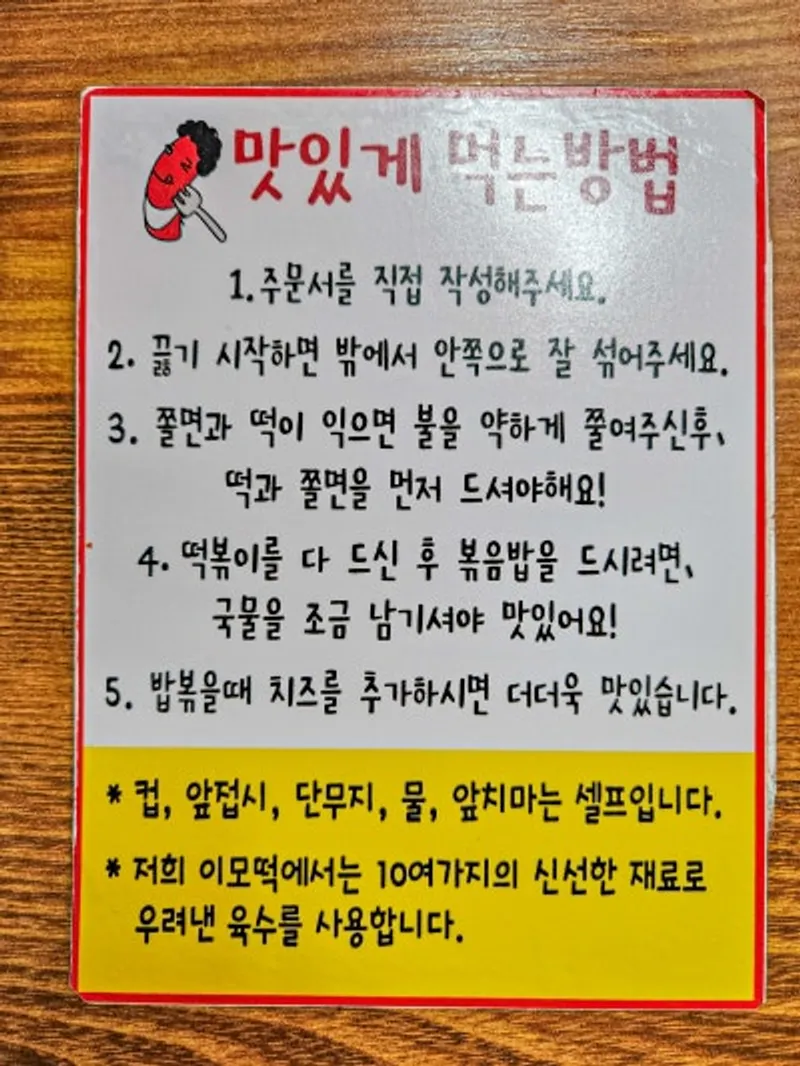 맛있게 먹는방법
1. 주문서를 직접 작성해주세요.
2. 끓기 시작하면 밖에서 안쪽으로 잘 섞어주세요.
3. 쫄면과 떡이 익으면 불을 약하게 쭐여주신후,
떡과 쫄면을 먼저 드셔야해요!
4. 떡볶이를 다 드신 후 볶음밥을 드시려면,
국물을 조금 남기셔야 맛있어요!
5. 밥볶을때 치즈를 추가하시면 더더욱 맛있습니다.
* 컵, 앞접시, 단무지, 물, 앞치마는 셀프입니다.
* 저희 이모떡에서는 10여가지의 신선한 재료로
우려낸 육수를 사용합니다.